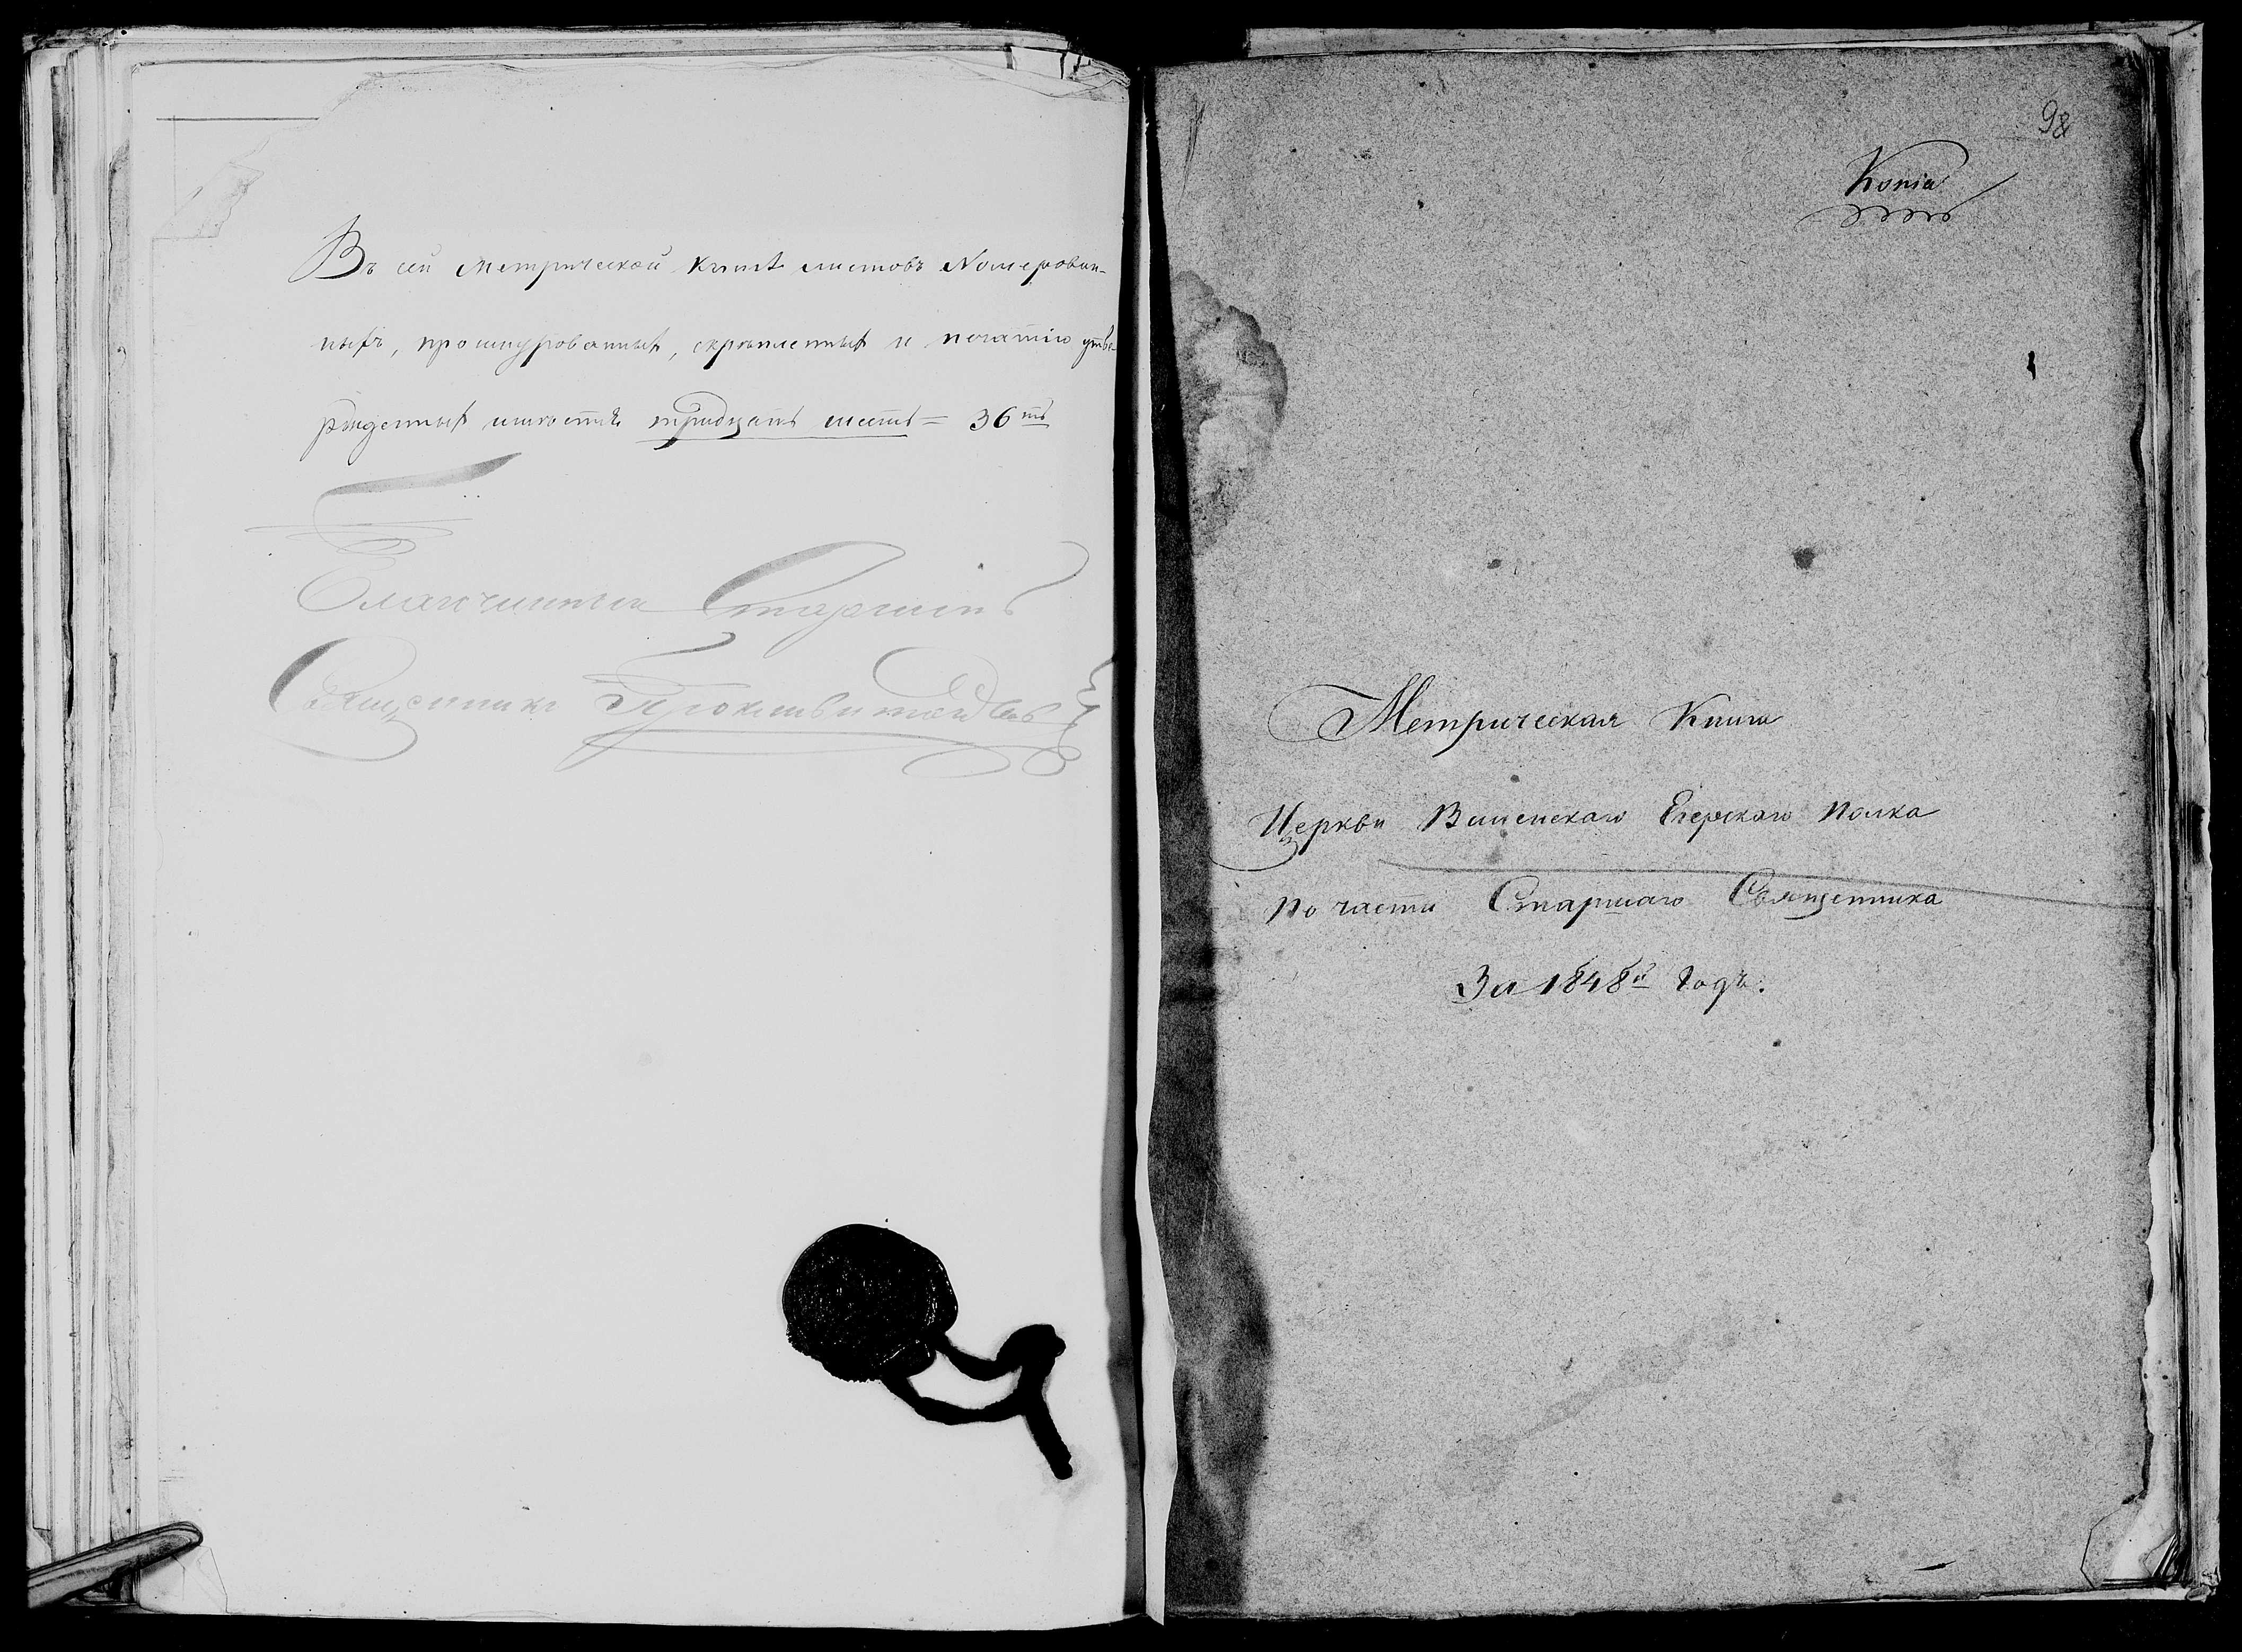 Въ сей Метрической Книгѣ листовъ Номерован-
ныхъ, прошнурованныхъ, скрѣпленныхъ и печатію утве-
ржденныхъ имѣется тридцать шесть = 36ть
Благочинный Старшій
Священникъ
98
Копія
Метрическая Книга
Церкви Виленскаго Егерскаго Полка
по части Старшаго Священника
За 1848й Годъ.